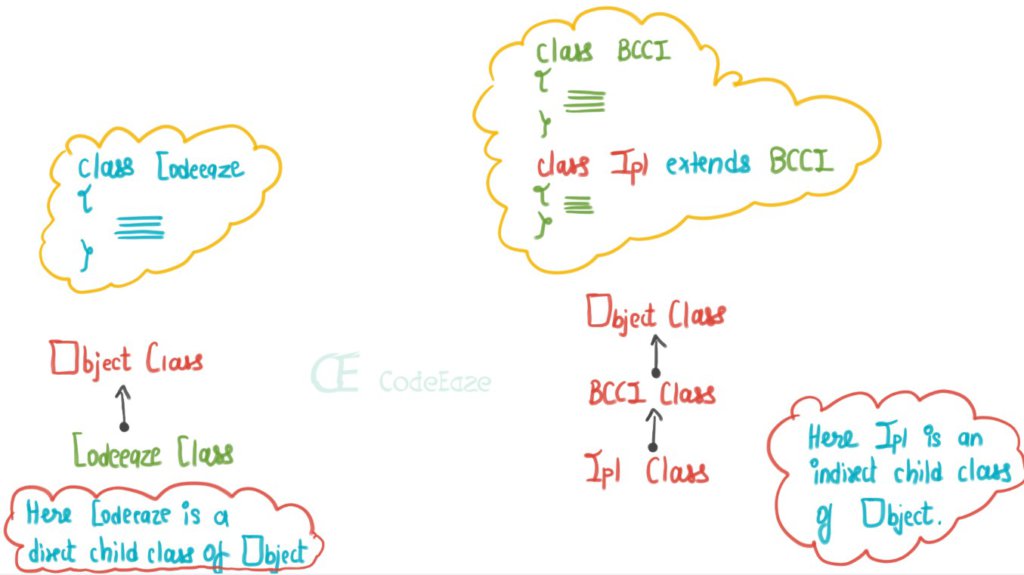 class Codeeaze
{
}
Object Class
Codeeaze Class
Here Codeeaze is a
direct child class of Object
CE CodeEaze
class BCCI
{
}
class Ipl extends BCCI
{
}
Object Class
BCCI Class
Ipl Class
Here Ipl is an
indirect child class
of Object.